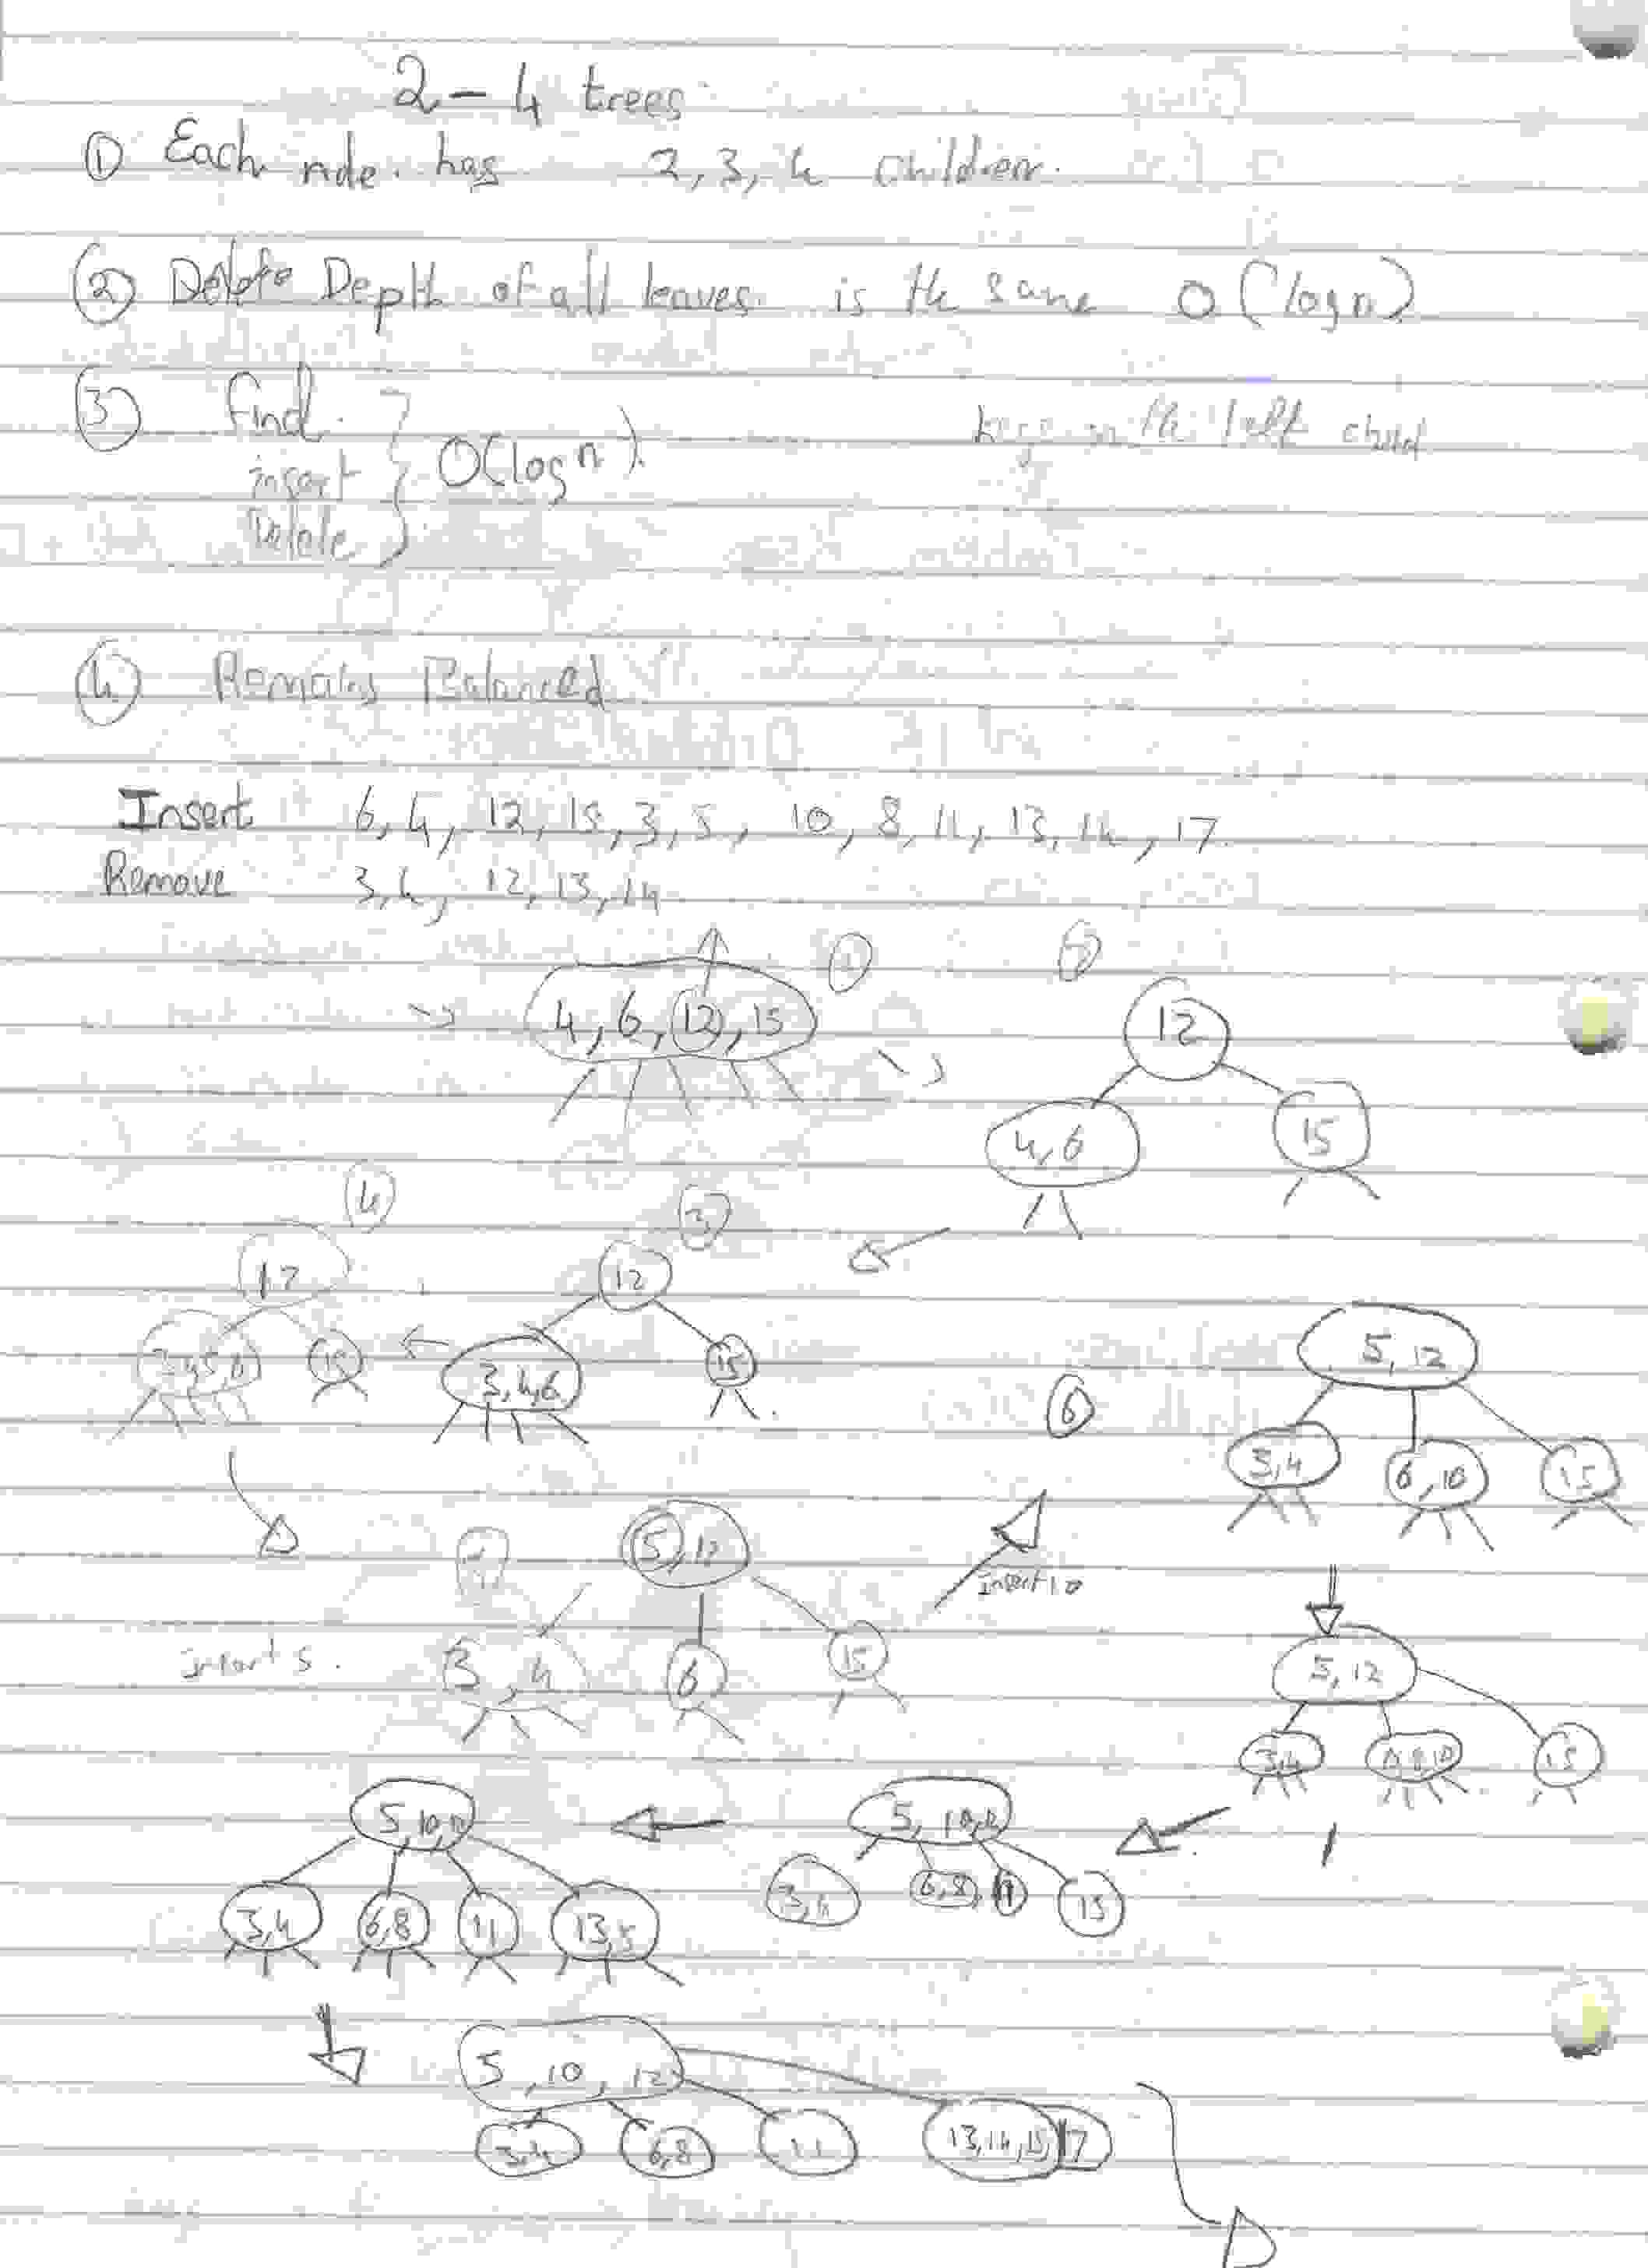 2 - 4 trees
① Each node. has 2, 3, 4 children.
② Depth of all leaves. is the same O(log n)
③ find.
insert
Delete
} O(log n).
in the left child
④ Remains Balanced
Insert 6, 4, 12, 15, 3, 5, 10, 8, 11, 13, 14, 17.
Remove 3, 4, 12, 13, 14
4, 6, 12, 15
12
4, 6
15
④
③
12
12
3,4,5,6
15
3,4,6
15
5, 12
⑥
3,4
6,10
15
5, 12
insert 10
insert 5.
3, 4
6
15
5, 12
3,4
6,8,10
15
5,10,12
5, 10,12
3,4
6,8
11
13,15
3,4
6,8
11
15
5, 10, 12
3,4
6,8
11
13,14,15,17